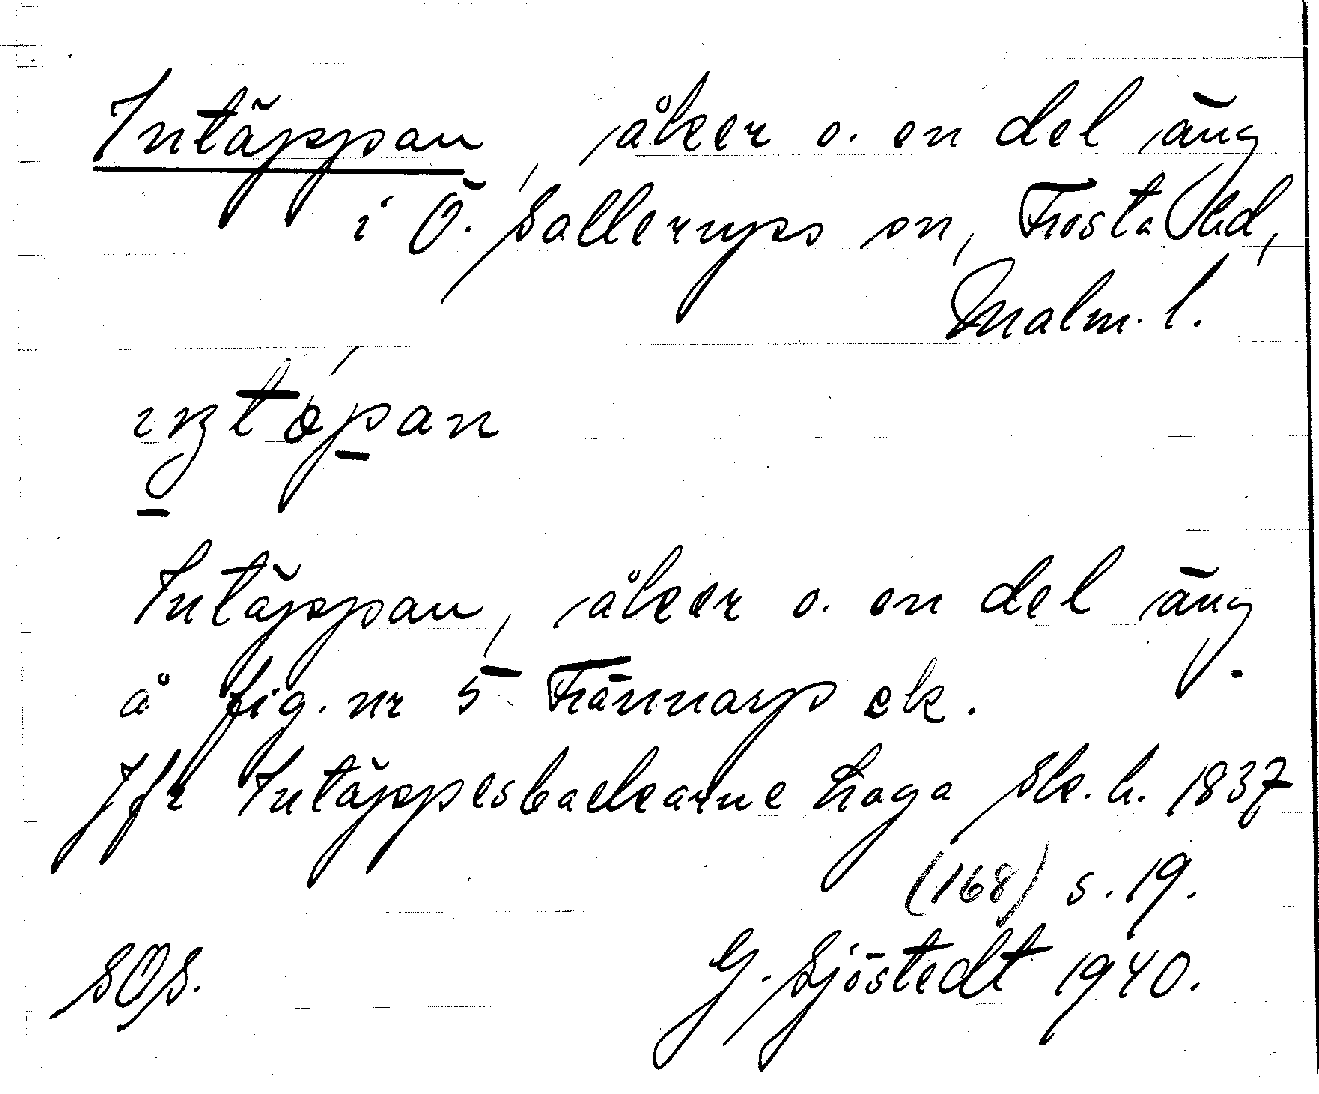 Intäppan, åker o. en del äng
i Ö. Sallerups sn, Frosta hd,
Malm. l.
Intäppan, åker o. en del äng
å fig. nr 5 Trännarp ek.
Jfr Intäppesbackarne Laga Sk. h. 1837
(168) s. 19.
SOS. G. Sjöstedt 1940.